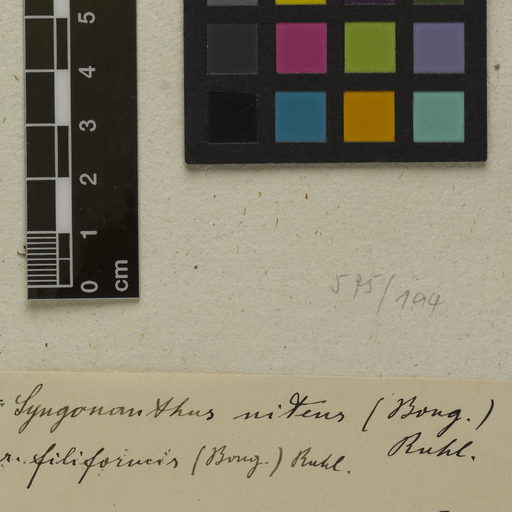 5
4
3
2
1
0
cm
575/194
Syngonanthus nitens (Bong.)
Ruhl.
r. filiformis (Bong.) Ruhl.